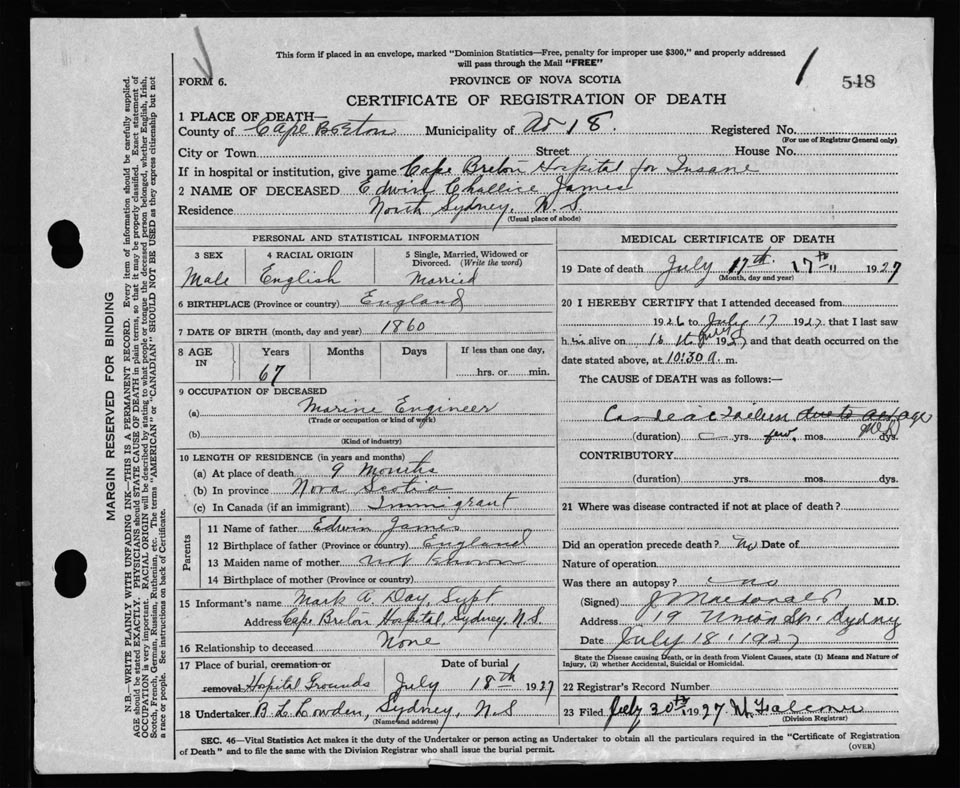 This form if placed in an envelope, marked "Dominion Statistics—Free, penalty for improper use $300," and properly addressed
will pass through the Mail "FREE"
FORM 6.
PROVINCE OF NOVA SCOTIA
1
548
CERTIFICATE OF REGISTRATION OF DEATH
1 PLACE OF DEATH—
County of Cape Breton Municipality of 18. Registered No.
(For use of Registrar General only)
City or Town Street House No.
If in hospital or institution, give name Cape Breton Hospital for Insane
2 NAME OF DECEASED Edwin Challice James
Residence North Sydney, N.S.
(Usual place of abode)
PERSONAL AND STATISTICAL INFORMATION
3 SEX 4 RACIAL ORIGIN 5 Single, Married, Widowed or
Divorced. (Write the word)
Male English Married
6 BIRTHPLACE (Province or country) England
7 DATE OF BIRTH (month, day and year) 1860
8 AGE IN Years Months Days If less than one day,
67 hrs. or min.
9 OCCUPATION OF DECEASED
(a) Marine Engineer
(Trade or occupation or kind of work)
(b)
(Kind of industry)
10 LENGTH OF RESIDENCE (in years and months)
(a) At place of death 9 Months
(b) In province Nova Scotia
(c) In Canada (if an immigrant) Immigrant
Parents
11 Name of father Edwin James
12 Birthplace of father (Province or country) England
13 Maiden name of mother Not Known
14 Birthplace of mother (Province or country)
15 Informant's name Mark A. Day, Supt.
Address Cape Breton Hospital, Sydney, N.S.
16 Relationship to deceased None
17 Place of burial, cremation or Date of burial
removal Hospital Grounds July 18th 1927
18 Undertaker B. L. Lowden, Sydney, N.S
(Name and address)
MEDICAL CERTIFICATE OF DEATH
19 Date of death July 17th. 17th " 1927
(Month, day and year)
20 I HEREBY CERTIFY that I attended deceased from
1926 to July 17 1927 that I last saw
him alive on 16 July 1927 and that death occurred on the
date stated above, at 10:30 a. m.
The CAUSE OF DEATH was as follows:—
Cardiac Failure due to old age
(duration) — yrs. few. mos. dys.
CONTRIBUTORY
(duration) yrs. mos. dys.
21 Where was disease contracted if not at place of death?
Did an operation precede death? No Date of
Nature of operation
Was there an autopsy? no
(Signed) J Macdonald M.D.
Address 19 Union St. Sydney
Date July 18, 1927
State the Disease causing Death, or in death from Violent Causes, state (1) Means and Nature of
Injury, (2) whether Accidental, Suicidal or Homicidal.
22 Registrar's Record Number
23 Filed July 30th, 1927 M Falconer
(Division Registrar)
SEC. 46—Vital Statistics Act makes it the duty of the Undertaker or person acting as Undertaker to obtain all the particulars required in the "Certificate of Registration
of Death" and to file the same with the Division Registrar who shall issue the burial permit.
(OVER)
MARGIN RESERVED FOR BINDING
N.B.—WRITE PLAINLY WITH UNFADING INK—THIS IS A PERMANENT RECORD. Every item of information should be carefully supplied.
AGE should be stated EXACTLY. PHYSICIANS should STATE CAUSE OF DEATH in plain terms, so that it may be properly classified. Exact statement of
OCCUPATION is very important. RACIAL ORIGIN will be described by stating to what people or tongue the deceased person belonged, whether English, Irish,
Scotch, French, German, Russian, Ruthenian, etc. The terms "AMERICAN" or "CANADIAN" SHOULD NOT BE USED as they express citizenship but not
a race or people. See instructions on back of Certificate.